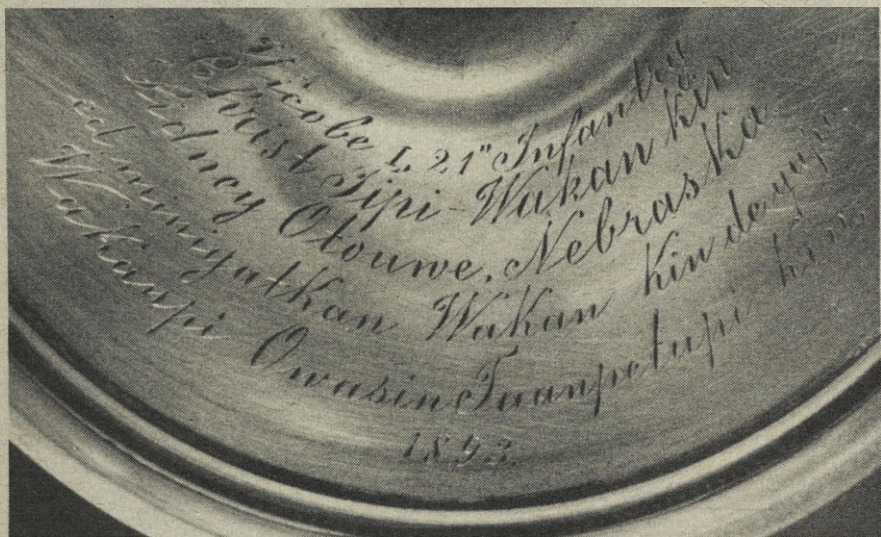 Ticobe L 21" Infantry
Christ Tipi-Wakan Kin
Sidney Otouwe, Nebraska
ed minigatkan Wakan kin de yapi
Wakaspi Owasin Taanpetupi kin,
1893.